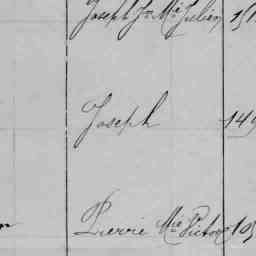 Joseph Jn Me Julien
Joseph 149
Pierre Me Victor 105